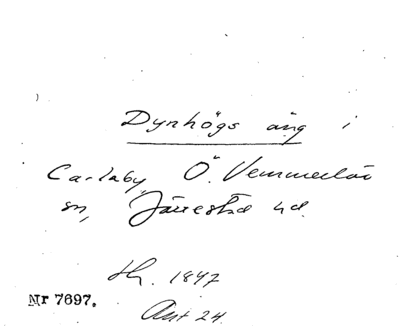 Dynhögs äng i
Carlaby, Ö. Vemmerlöv
sn, Järrestad hd.
Hf. 1847
Nr 7697.
Akt 24